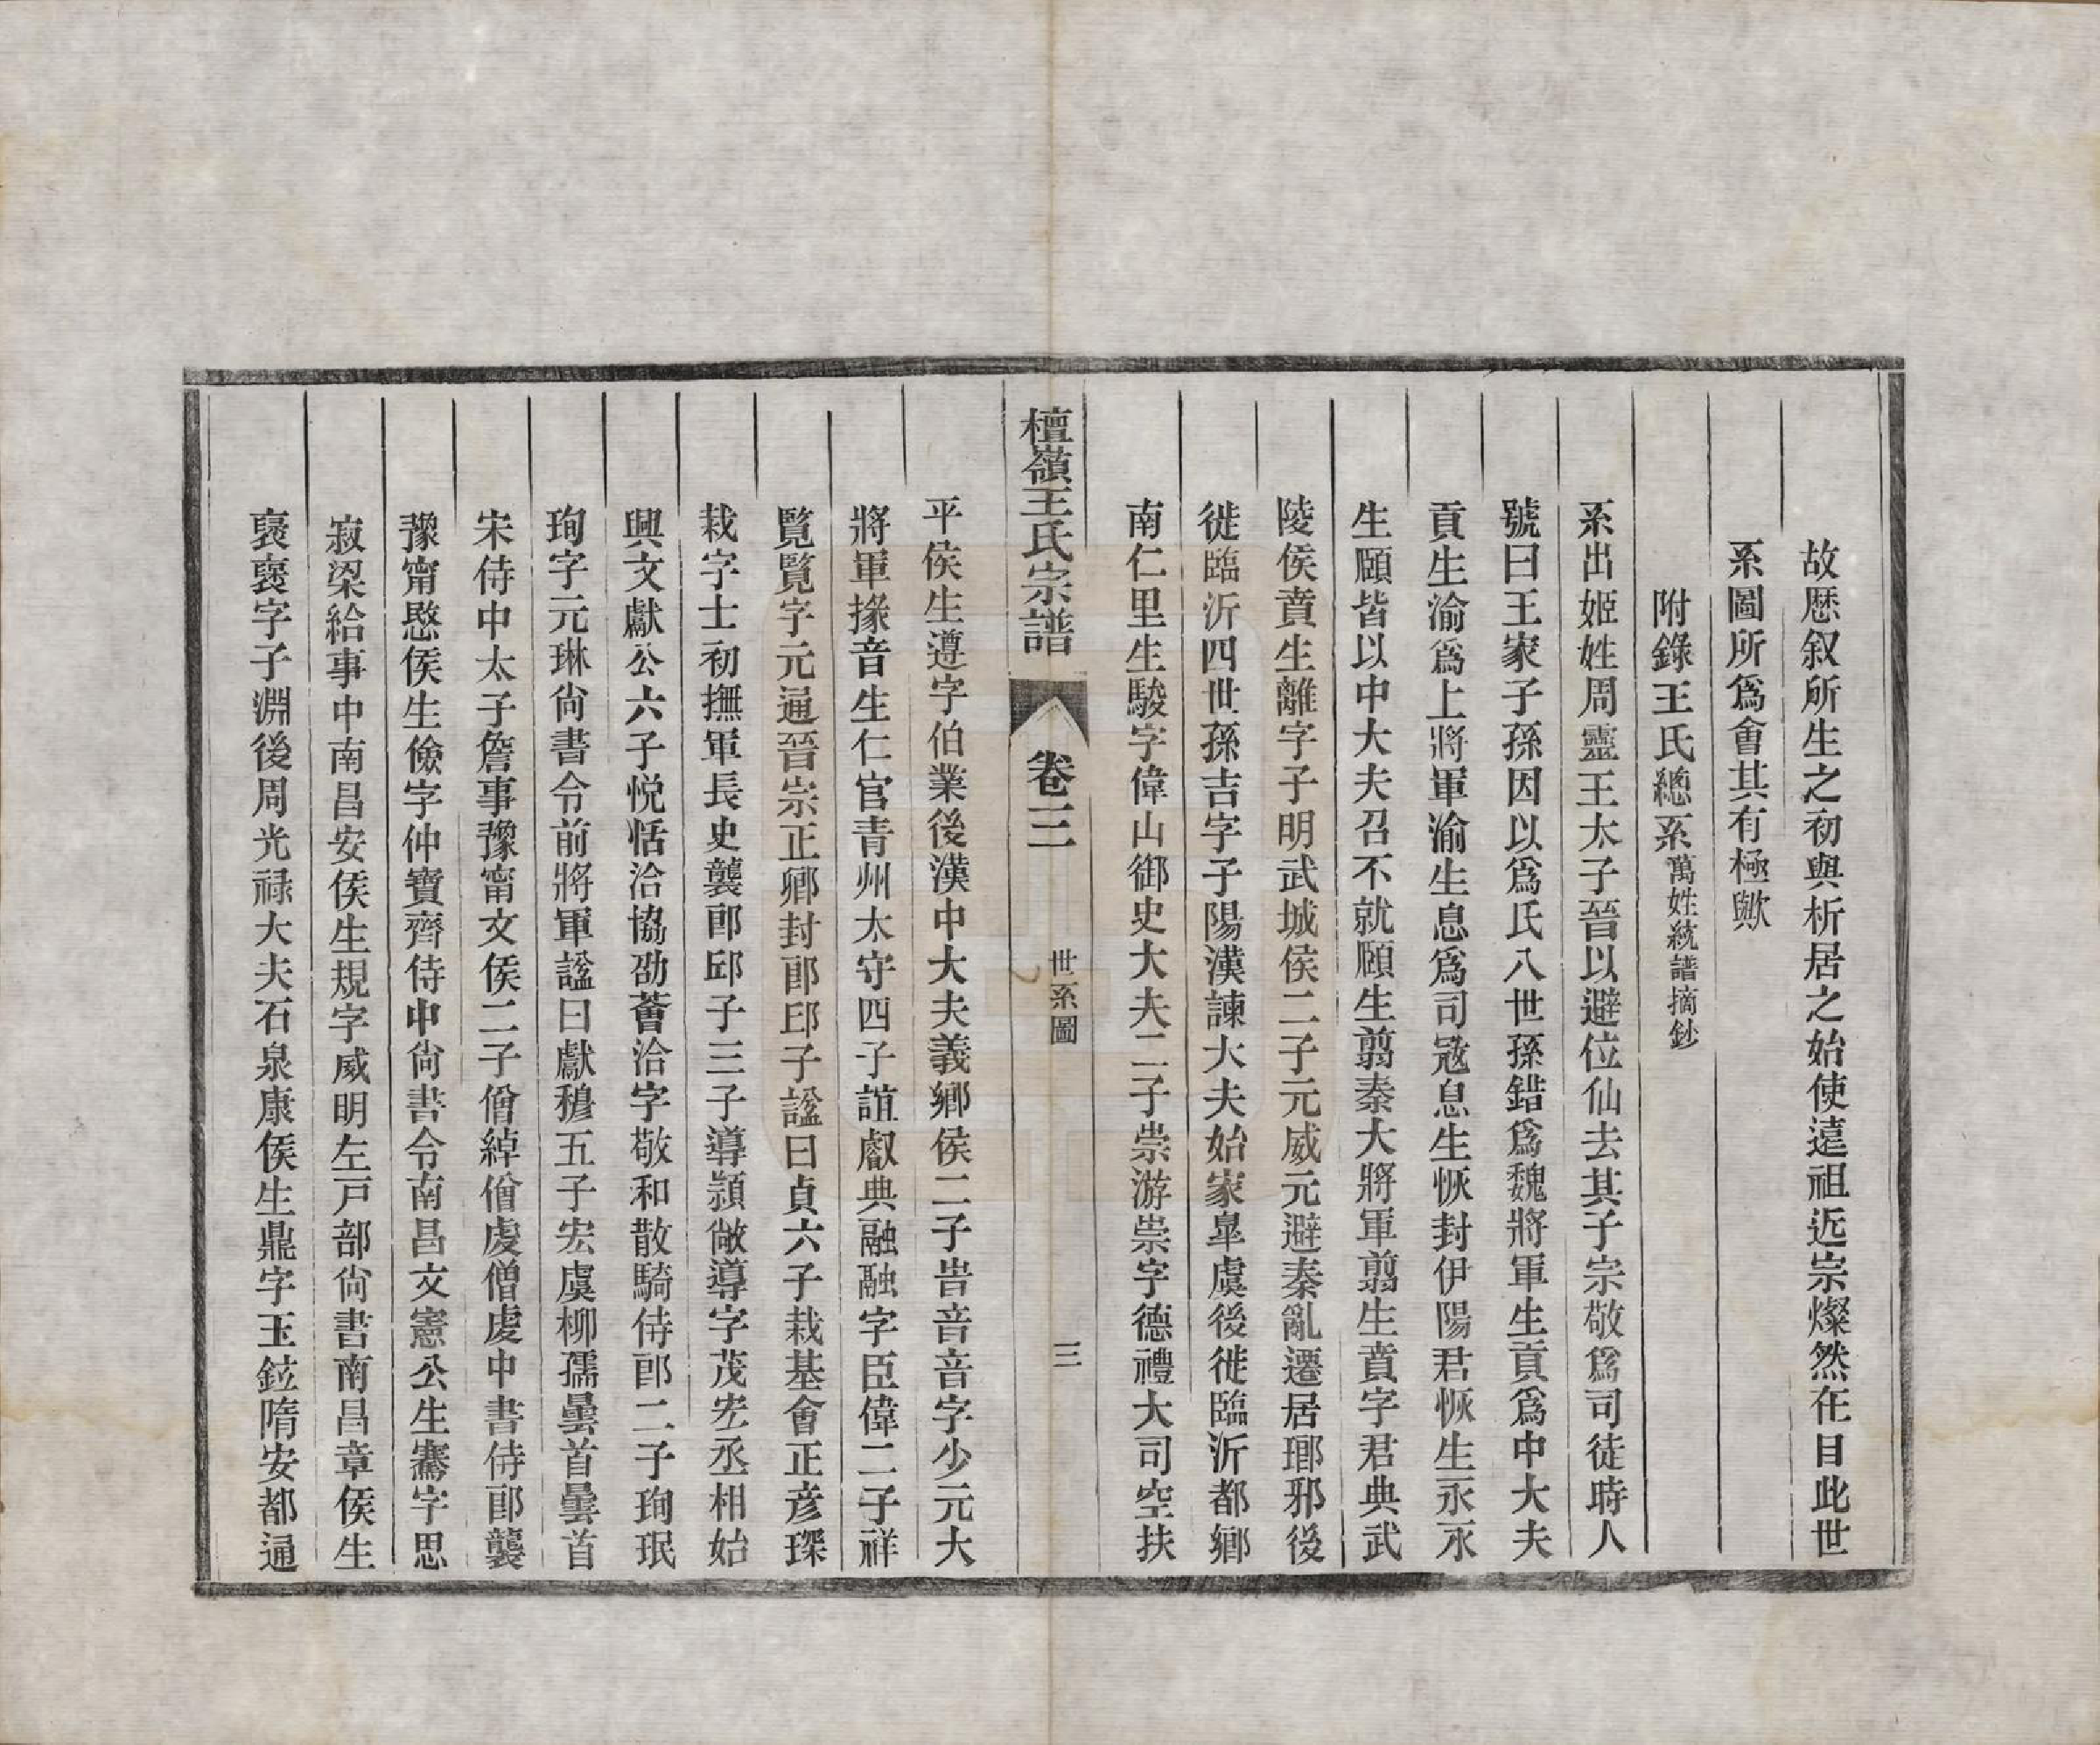 故歷叙所生之初與析居之始使遠祖近宗燦然在目此世
系圖所爲會其有極歟
附錄王氏總系萬姓統譜摘鈔
系出姬姓周靈王太子晉以避位仙去其子宗敬爲司徒時人
號曰王家子孫因以爲氏八世孫錯爲魏將軍生賁爲中大夫
賁生渝爲上將軍渝生息爲司寇息生恢封伊陽君恢生永永
生頤皆以中大夫召不就頤生翦秦大將軍翦生賁字君典武
陵侯賁生離字子明武城侯二子元威元避秦亂遷居瑯邪後
徙臨沂四世孫吉字子陽漢諫大夫始家皐虞後徙臨沂都鄉
南仁里生駿字偉山御史大夫二子崇游崇字德禮大司空扶
檀嶺王氏宗譜 卷三 世系圖 三
平侯生遵字伯業後漢中大夫義鄉侯二子旹音音字少元大
將軍掾音生仁官青州太守四子誼叡典融融字臣偉二子祥
覽覽字元通晉宗正卿封郎邱子諡曰貞六子栽基會正彦琛
栽字士初撫軍長史襲郎邱子三子導潁敞導字茂宏丞相始
興文獻公六子悅恬洽協劭薈洽字敬和散騎侍郎二子珣珉
珣字元琳尙書令前將軍諡曰獻穆五子宏虞柳孺曇首曇首
宋侍中太子詹事豫甯文侯二子僧綽僧虔僧虔中書侍郎襲
豫甯愍侯生儉字仲寶齊侍中尙書令南昌文憲公生騫字思
寂梁給事中南昌安侯生規字威明左戸部尙書南昌章侯生
襃襃字子淵後周光祿大夫石泉康侯生鼎字玉鉉隋安都通